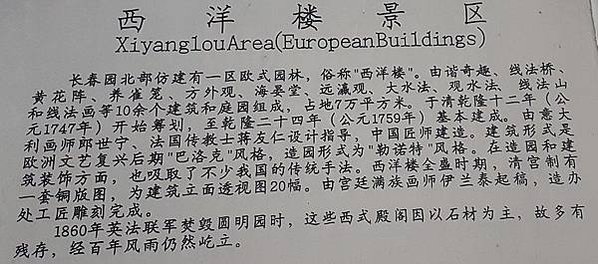 西洋楼景区
XiyanglouArea(EuropeanBuildings)
长春园北部仿建有一区欧式园林，俗称"西洋楼"。由谐奇趣、线法桥、
黄花阵、养雀笼、方外观、海晏堂、远瀛观、大水法、观水法、线法山
和线法画等10余个建筑和庭园组成，占地7万平方米。于清乾隆十二年（公
元1747年）开始筹划，至乾隆二十四年（公元1759年）基本建成。由意大
利画师郎世宁、法国传教士蒋友仁设计指导，中国匠师建造。建筑形式是
欧洲文艺复兴后期"巴洛克"风格，造园形式为"勒诺特"风格。在造园和建
筑装饰方面，也吸取了不少我国的传统手法。西洋楼全盛时期，清宫制有
一套铜版图，为建筑立面透视图20幅。由宫廷满族画师伊兰泰起稿，造办
处工匠雕刻完成。
1860年英法联军焚毁圆明园时，这些西式殿阁因以石材为主，故多有
残存，经百年风雨仍然屹立。